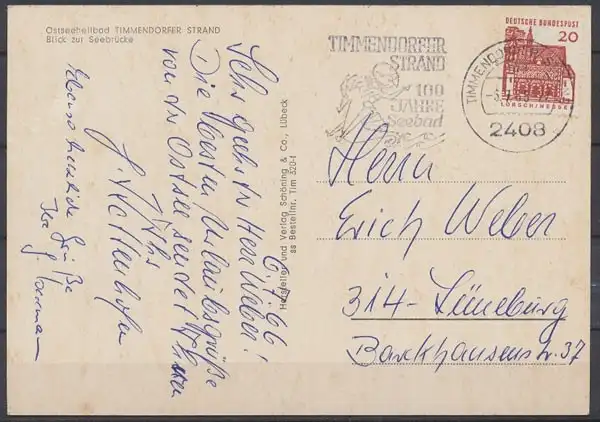 Ostseeheilbad TIMMENDORFER STRAND
Blick zur Seebrücke
6.7.66
Sehr geehrter Herr Weber!
Die besten Urlaubsgrüße
von der Ostsee sendet Ihnen
Ihr
Ebenso herzliche Grüße
Ihr
Hersteller und Verlag Schöning & Co., Lübeck
ss Bestellnr. Tim 520-I
TIMMENDORFER
STRAND
100
JAHRE
Seebad
2408
DEUTSCHE BUNDESPOST
20
LORSCH/HESSEN
Herrn
Erich Weber
314-Lüneburg
Barckhausenstr. 37